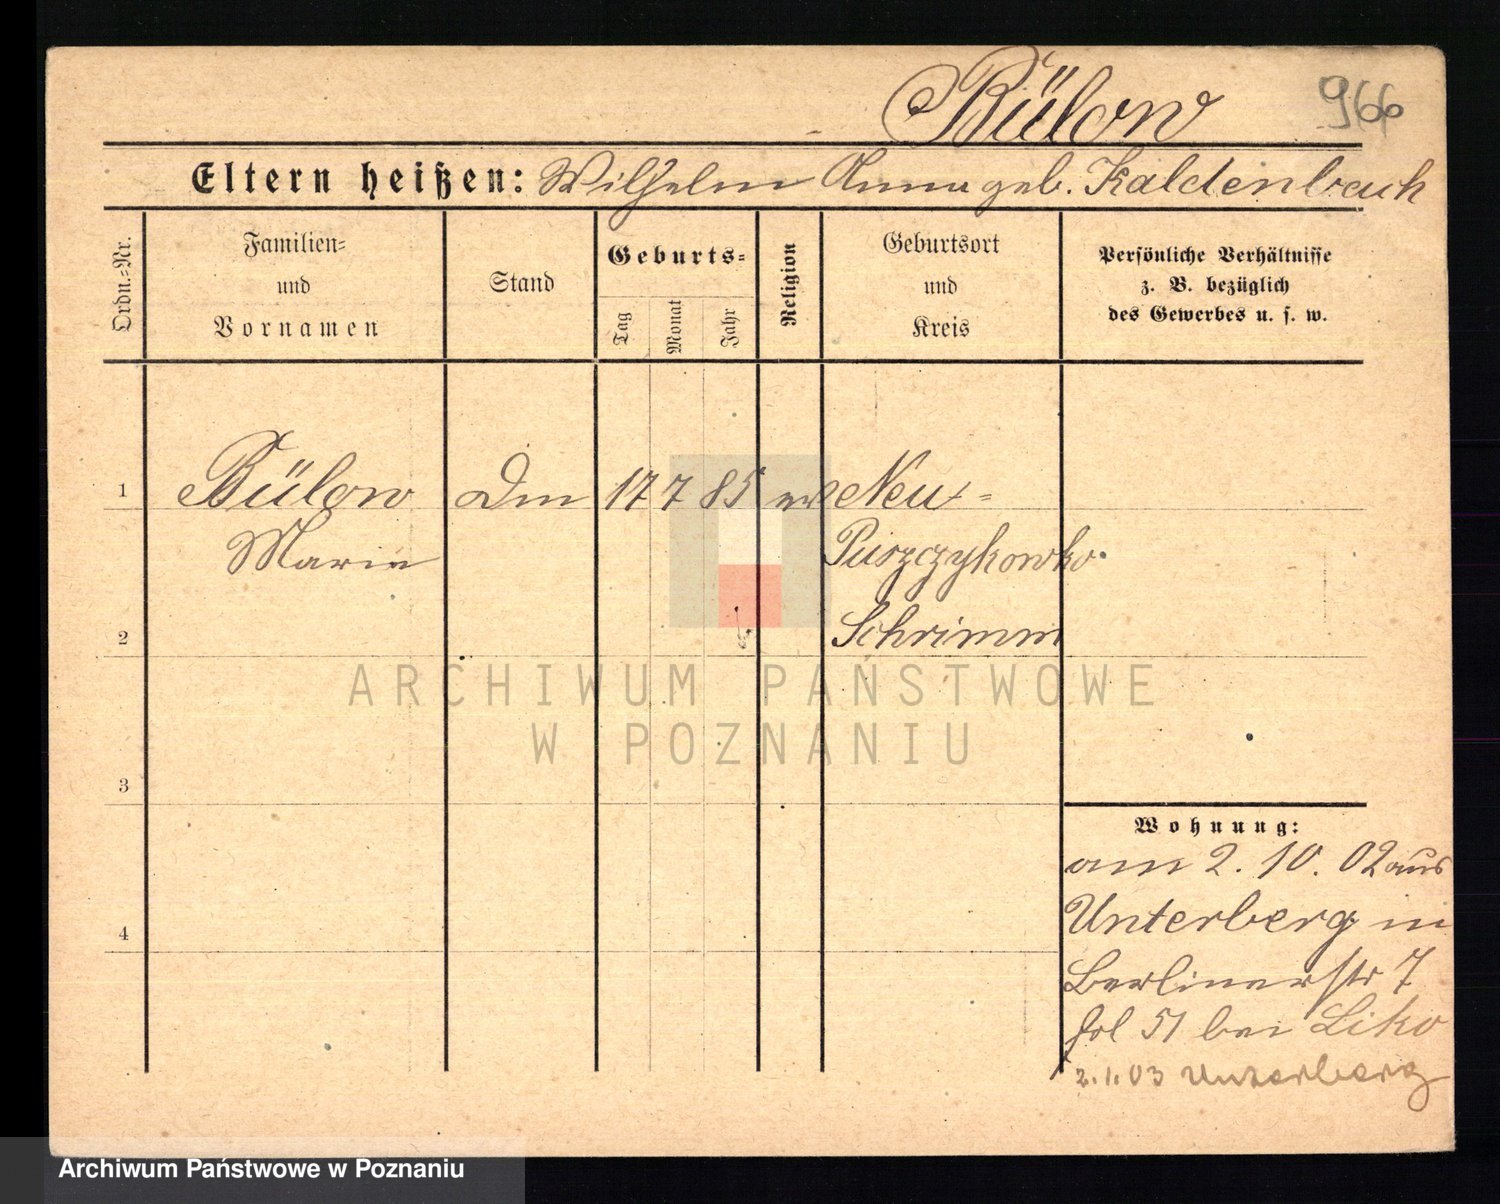 Bülow 966
Eltern heißen: Wilhelm Anna geb. Kaldenbach
Ordn.-Nr.
Familien-
und
Vornamen
Stand
Geburts-
Tag
Monat
Jahr
Religion
Geburtsort
und
Kreis
Persönliche Verhältnisse
z. B. bezüglich
des Gewerbes u. s. w.
1 Bülow Dm 17 7 85 ev Neu-
Marie Puszczykowko
2 Schrimm
ARCHIWUM PAŃSTWOWE
W POZNANIU
3
Wohnung:
am 2. 10. 02 aus
4 Unterberg in
Berlinerstr 7
fol 51 bei Liko
2. 1. 03 Unterberg
Archiwum Państwowe w Poznaniu